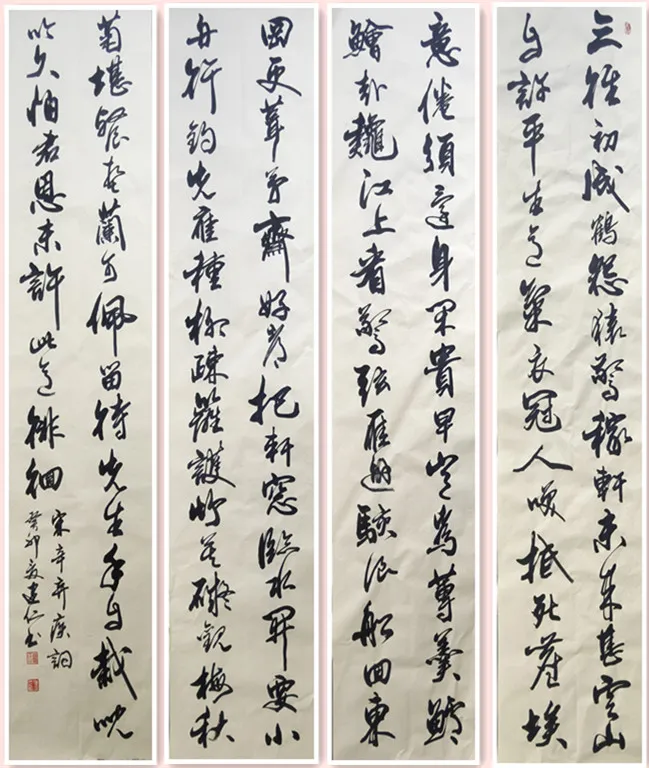 三徑初成鶴怨猿驚稼軒未來甚雲山
自許平生意氣衣冠人笑抵死塵埃
意倦須還身閑貴早豈為蓴羹鱸
鱠哉龝江上看驚弦雁避駭浪船回東
岡更葺茅齋好都把軒窓臨水開要小
舟行釣先應種柳疎籬護竹莫礙觀梅秋
菊堪餐春蘭可佩留待先生手自栽沈
吟久怕君恩未許此意徘徊
宋辛弃疾詞
癸卯夏建仁书